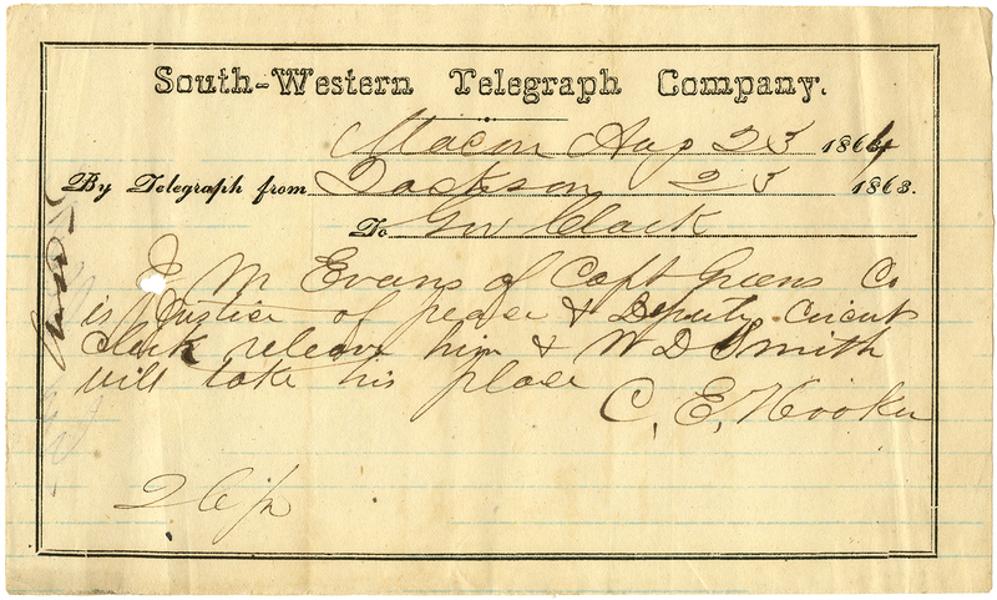 South-Western Telegraph Company.
Macon Aug 23 1864
By Telegraph from Jackson 23 1863.
To Gov Clark
J M Evans of Capt Greens Co
is Justice of peace & Deputy Circut
Clerk releave him & W D Smith
will take his place
C, E, Hooker